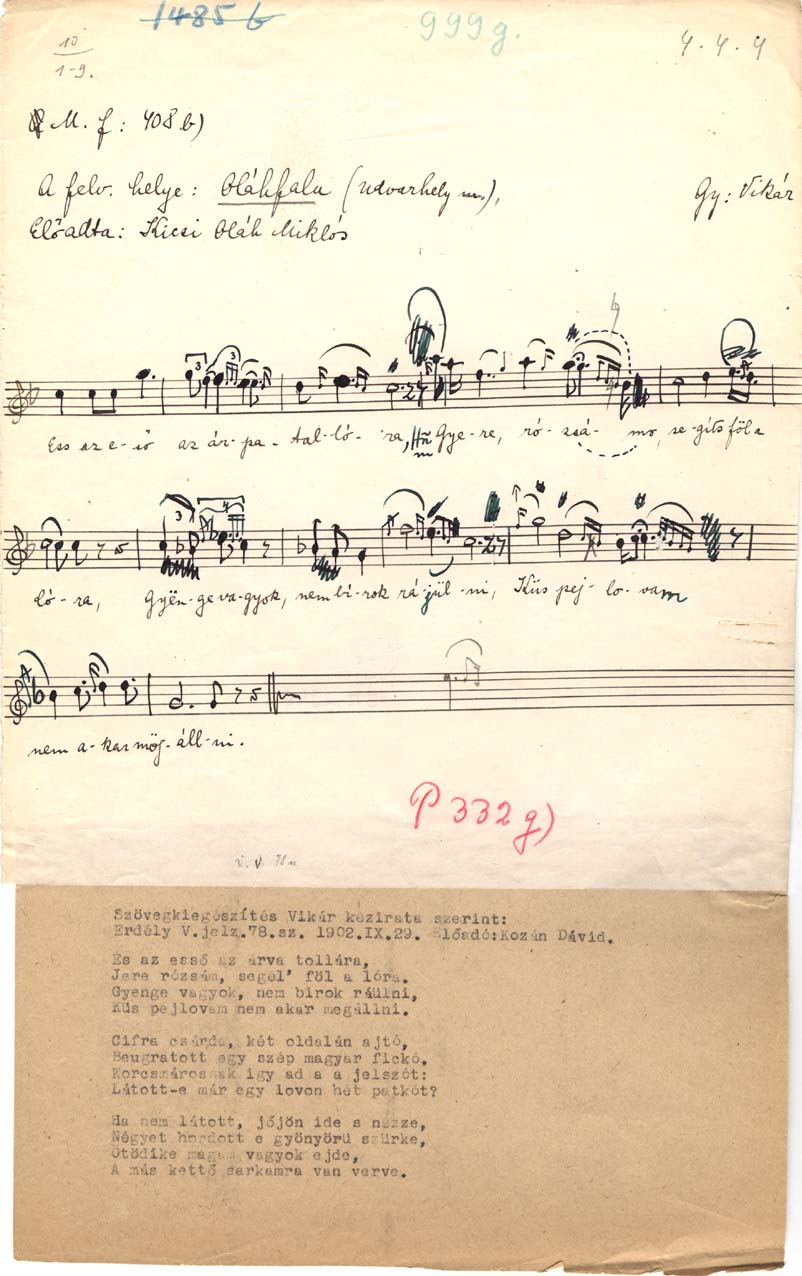 1485 b
999 g.
4. 4. 4
10
1-9.
M. f: 408 b)
A felv. helye: Oláhfalu (Udvarhely m.),
Gy: Vikár
Előadta: Kicsi Oláh Miklós
3 3
Ess az e-ső az ár-pa-tal-ló-ra, Gye-re, ró-zsá-mo, se-gíts föl a
3 4
ló-ra, Gyën-ge va-gyok, nem bí-rok rá-jül-ni, Küs pej-lo-vam
nem a-kar mög-áll-ni.
P 332 g)
V. V. 78
Szövegkiegészítés Vikár kézirata szerint:
Erdély V.jelz.78.sz. 1902.IX.29. Előadó:Kozán Dávid.
És az esső az árva tollára,
Jere rózsám, segel’ föl a lóra.
Gyenge vagyok, nem birok ráülni,
Küs pejlovam nem akar megállni.
Cifra csárda, két oldalán ajtó,
Beugratott egy szép magyar fickó.
Korcsmárosnak igy ad a a jelszót:
Látott-e már egy lovon hét patkót?
Ha nem látott, jőjön ide s nézze,
Négyet hordott e gyönyörü szürke,
Ötödike magam vagyok ejde,
A más kettő sarkamra van verve.